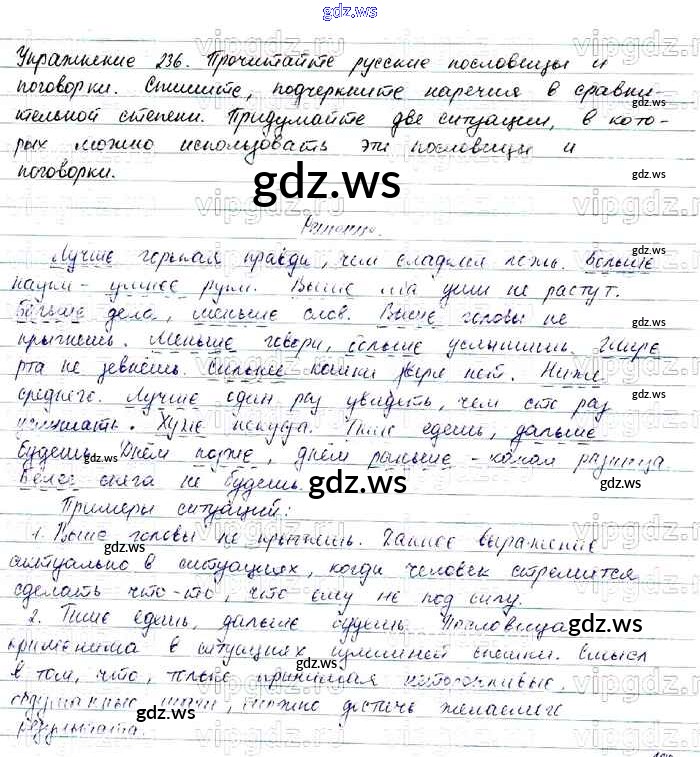 gdz.ws
Упражнение 236. Прочитайте русские пословицы и
поговорки. Спишите, подчеркните наречия в сравни-
тельной степени. Придумайте две ситуации, в кото-
рых можно использовать эти пословицы и
поговорки.
gdz.ws
Решение.
Лучше горькая правда, чем сладкая ложь. Больше
науки - умнее руки. Выше лба уши не растут.
Больше дела, меньше слов. Выше головы не
прыгнешь. Меньше говори, больше услышишь. Шире
рта не зевнёшь. Сильнее кошки зверя нет. Ниже
среднего. Лучше один раз увидеть, чем сто раз
услышать. Хуже некуда. Тише едешь, дальше
будешь. Днём позже, днём раньше - какая разница.
Белее снега не будешь.
gdz.ws
Примеры ситуаций:
1. Выше головы не прыгнешь. Данное выражение
актуально в ситуациях, когда человек стремится
сделать что-то, что ему не под силу.
2. Тише едешь, дальше будешь. Пословица
применима в ситуациях излишней спешки. Смысл
в том, что, только принимая неторопливые,
обдуманные шаги, можно достичь желаемого
результата.
gdz.ws